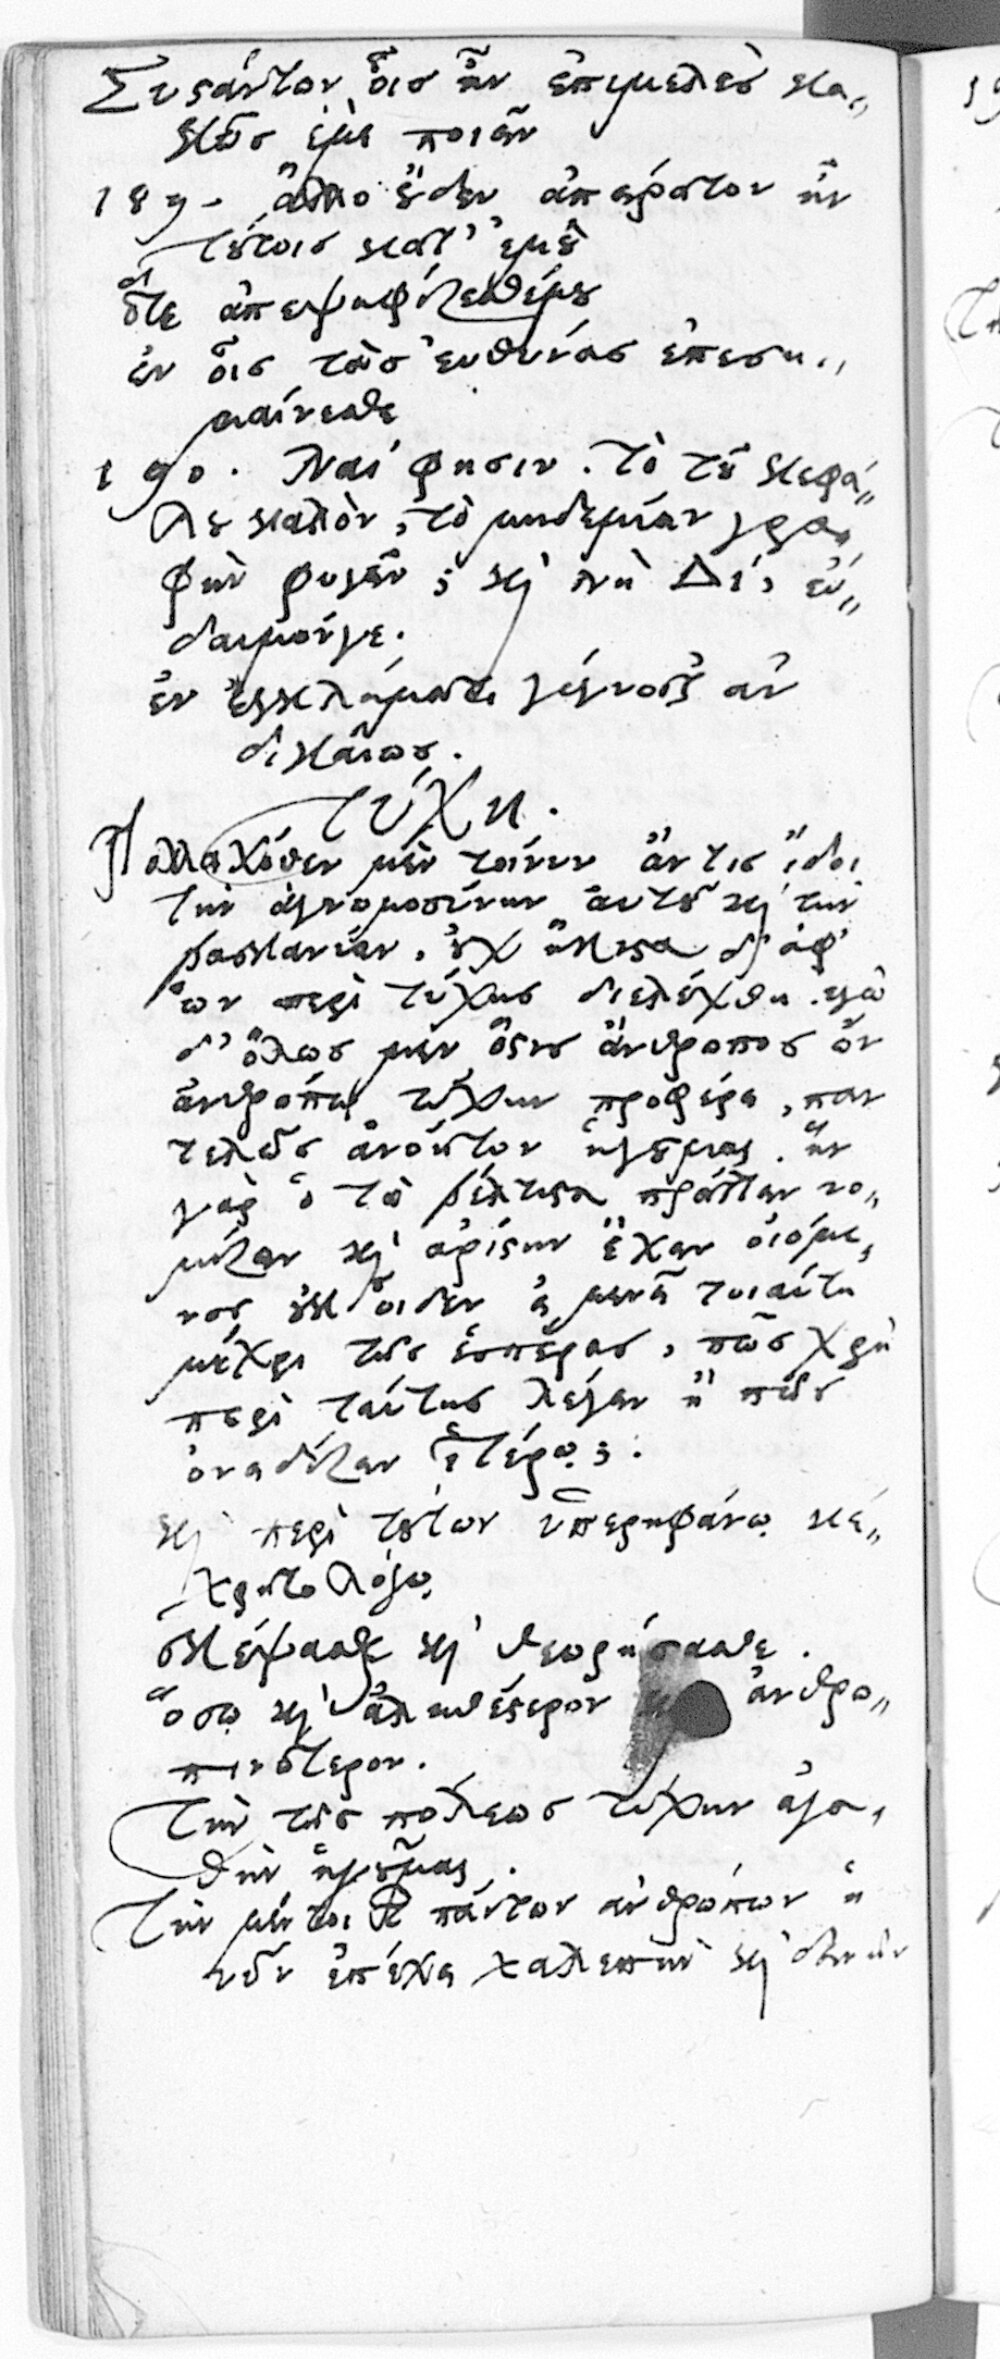 Συϛάντων ὅις ἦν ἐπιμελὲς κα„
κῶς ἐμὲ ποιεῖν
189. ἄλλο ȣ̓δὲν ἀπέρατον ἦν
τȣ́τοις κατ' ἐμȣ͂
ὅτε ἀπεψηφίζεσθέ μȣ
ἐν ὅις τὰς ἐυθύνας ἐπεση„
μαίνεσθε
190. Ναί φησιν. τὸ τȣ͂ Κεφά„
λȣ καλὸν, τὸ μηδεμίαν γρα„
φὴν φυγεῖν; κỳ νὴ Δί, ἐύ„
δαιμόνγε.
ἐν ἐγκλήματι γίγνοιτ ἂν
δικάιως.
Τύχη.
Πολλαχόθεν μὲν τοίνυν ἄν τις ἴδοι
τὴν ἀγνωμοσύνην ἀυτȣ͂ κỳ τὴν
βασκανίαν, ȣ̓χ ἥκιϛα δ' ἀφ'
ὧν περὶ τύχης διελέχθη. ἐγὼ
δ' ὅλως μὲν ὅϛις ἄνθρωπος ὢν
ἀνθρώπῳ τύχην προφέρει, παν
τελῶς ἀνόητον ἡγȣ͂μαι. ἣν
γὰρ ὁ τὰ βέλτιϛα πράττειν νο„
μίζων κỳ ἀρίϛην ἔχειν ὀιόμε„
νος ȣ̓κ ὀιδεν ἐι μενεῖ τοιαύτη
μέχρι τῆς ἑσπέρας, πῶς χρὴ
περὶ ταύτης λέγειν ἢ πῶς
ὀνειδίζειν ἑτέρῳ;
κỳ περὶ τȣ́των ὑπερηφάνῳ κέ„
χρηται λόγῳ
σκέψασθε κỳ θεωρήσασθε.
ὅσῳ κỳ ἀληθέϛερον ἀνθρω„
πινώτερον.
Τὴν τῆς πόλεως τύχην ἀγα„
θὴν ἡγȣ͂μαι.
Τὴν μέντοι τῶν πάντων ἀνθρώπων ἣ
νῦν ἐπέχει χαλεπὴν κỳ δεινὴν